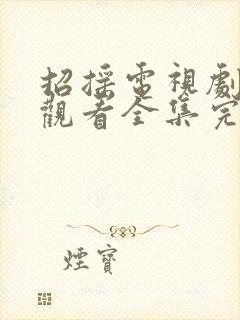 招摇電視劇
觀看全集完
煙寶